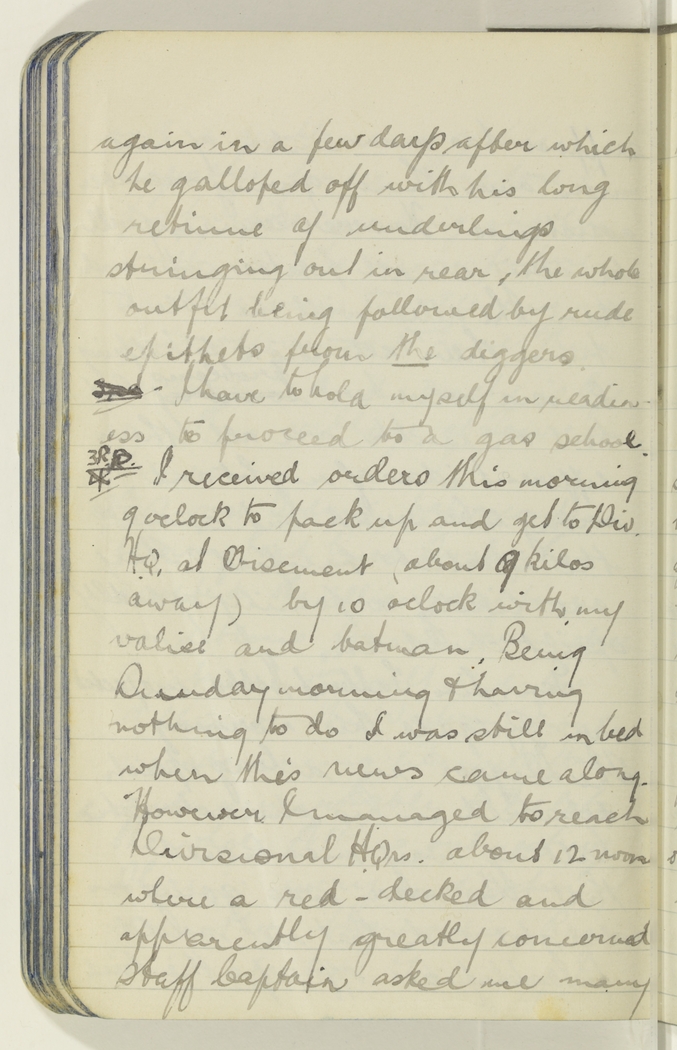 again in a few days after which
he galloped off with his long
retinue of underlings
stringing out in rear, the whole
outfit being followed by rude
epithets from the diggers.
I have to hold myself in readin-
ess to proceed to a gas school.
3RD. I received orders this morning
9 oclock to pack up and get to Div.
H.Q. at Oisement (about 9 kilos
away) by 10 oclock with my
valise and batman. Being
Sunday morning & having
nothing to do I was still in bed
when this news came along.
However I managed to reach
Divisional H.Qrs. about 12 noon
where a red-decked and
apparently greatly concerned
Staff Captain asked me many